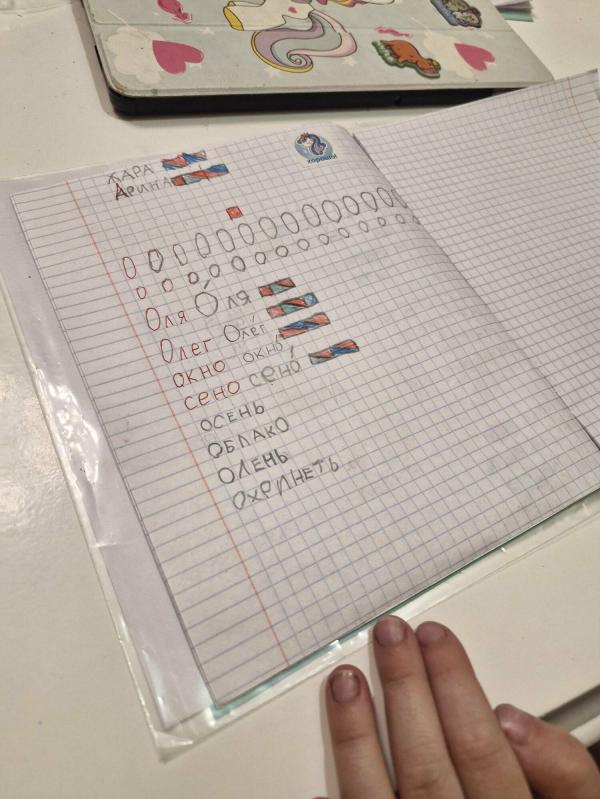 хорошо!
ЖАРА
АРИНА
О О О О О О О О О О О О О О
о о о о о о о о о о о о о о
Оля О́ля
Олег Оле́г
окно окно́
сено сено́
ОСЕНЬ
ОБЛАКО
ОЛЕНЬ
ОХРИНЕТЬ